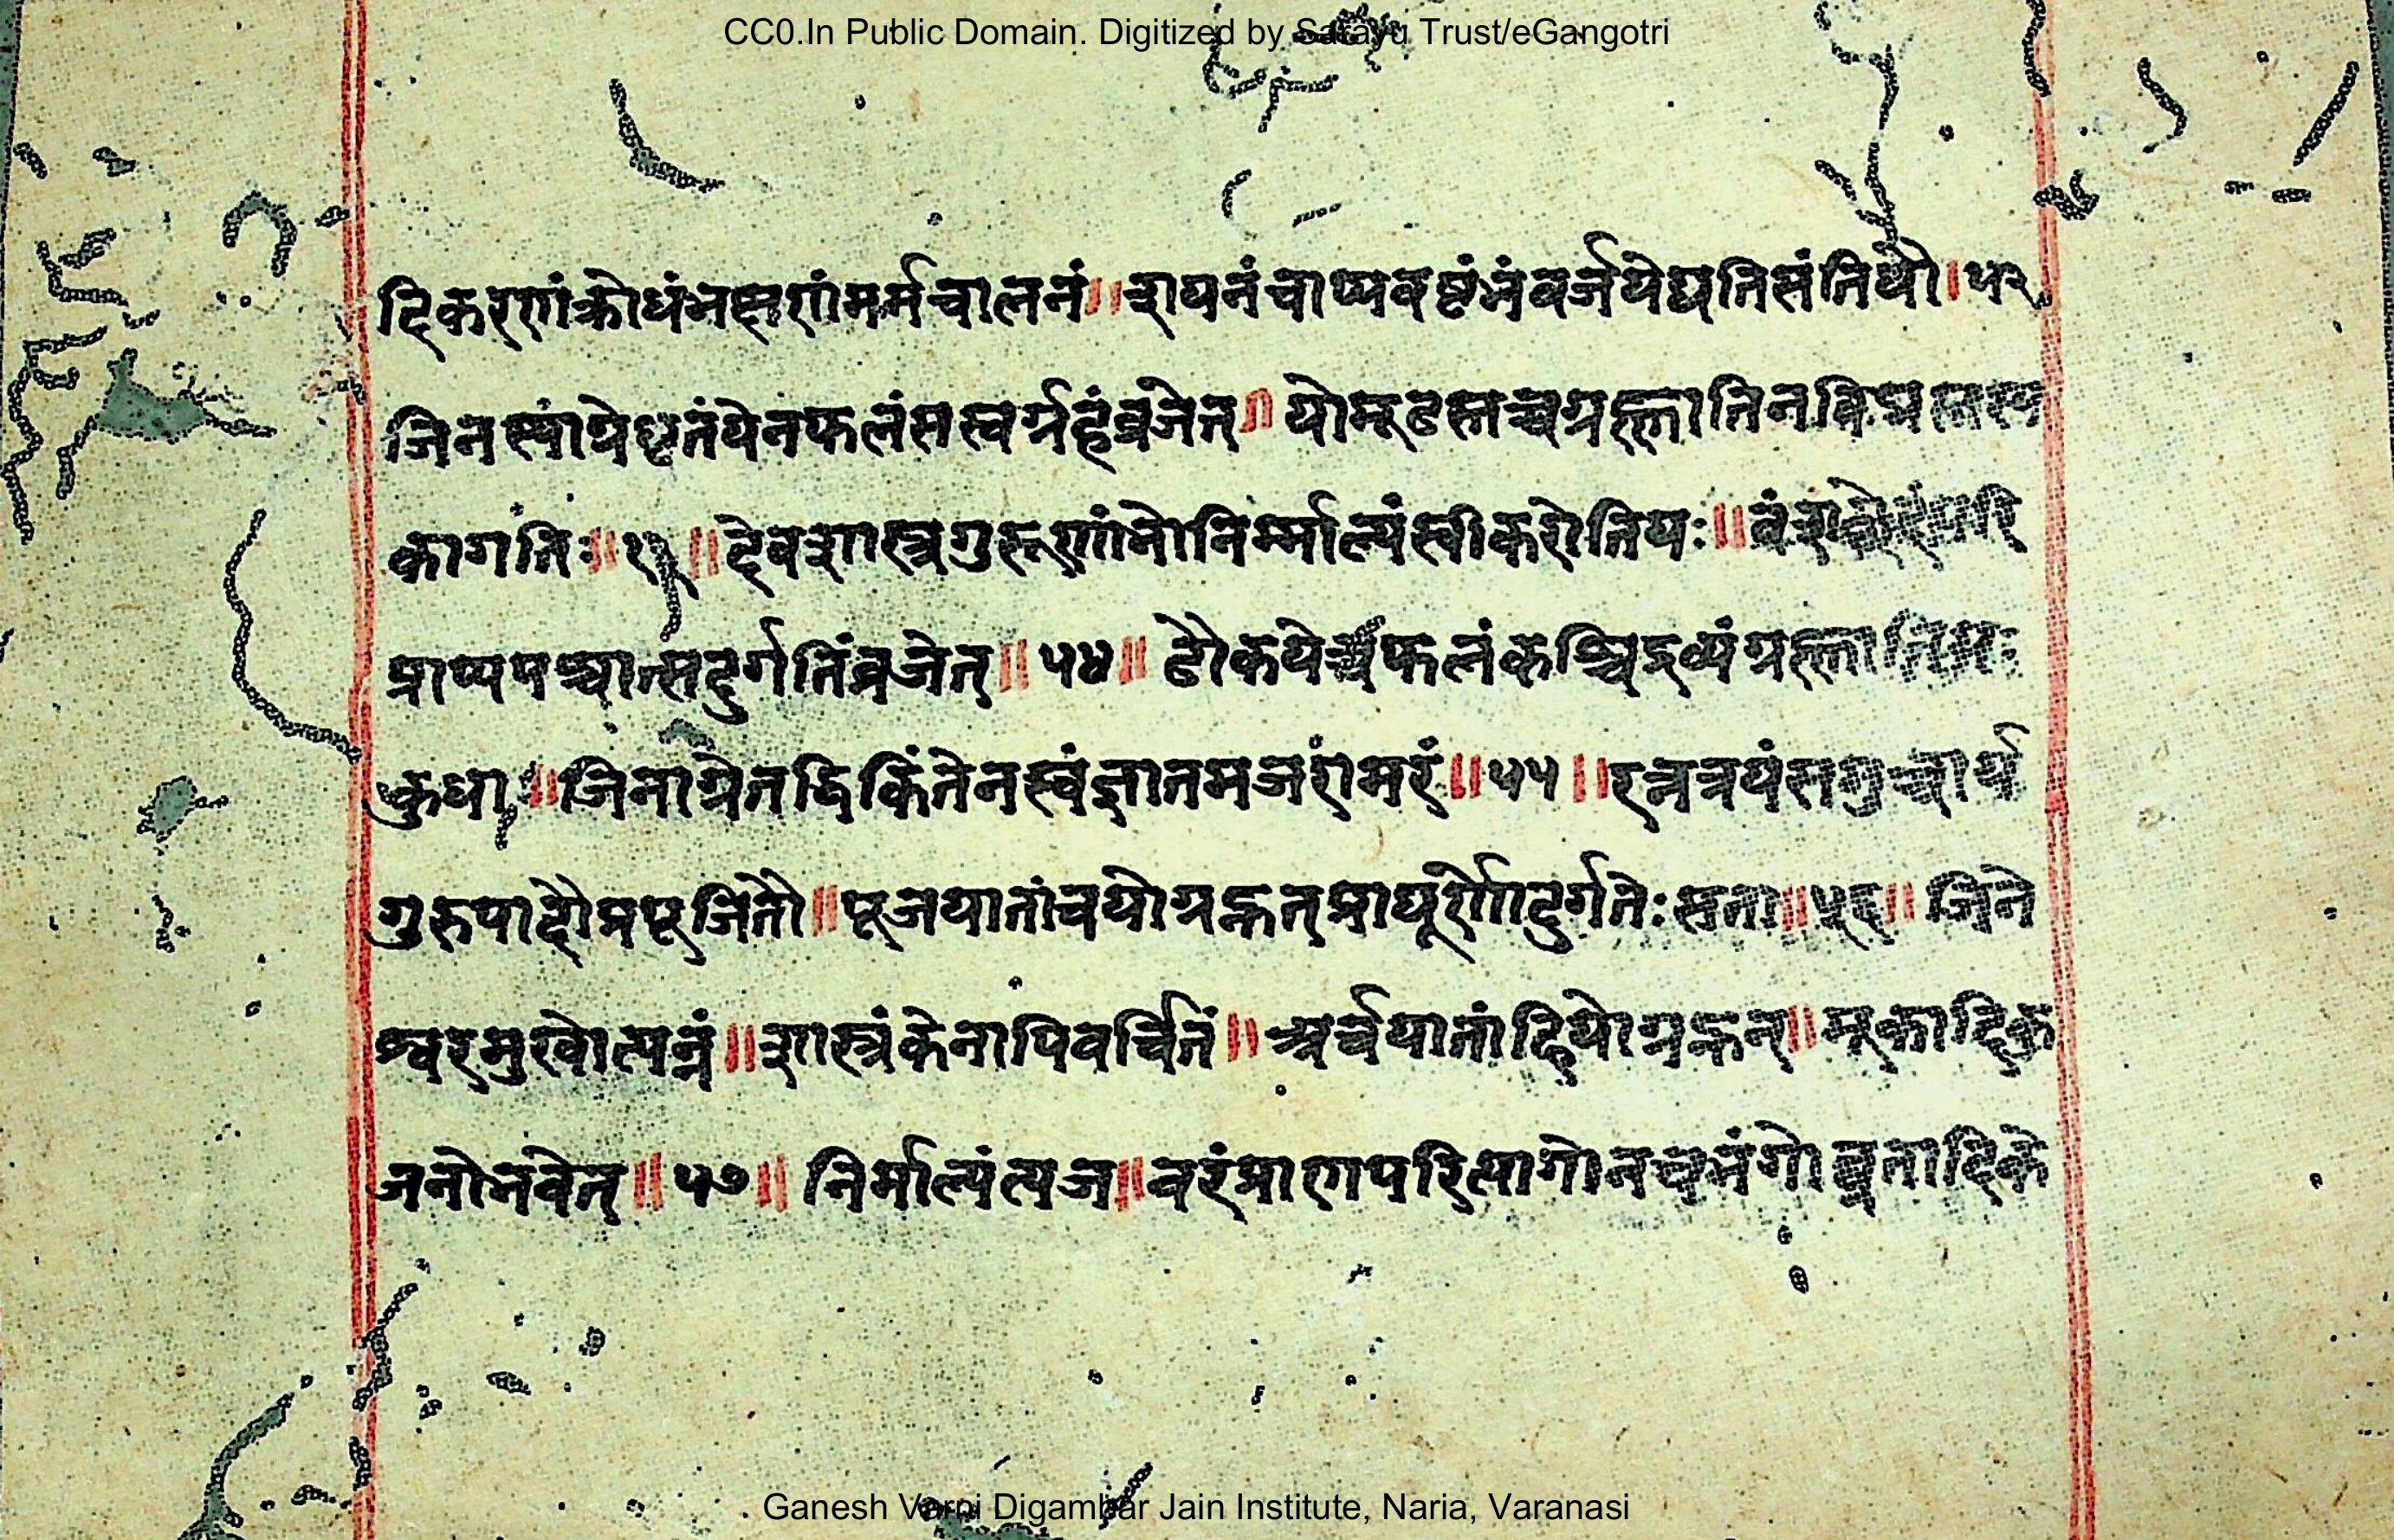 CC0.In Public Domain. Digitized by Sarayu Trust/eGangotri
दिकरणंक्रोधंभषणंमर्मचालनं॥शयनंचाप्यवष्टंभंवर्जयेद्यतिसंनिधौ।५२
जिनस्याग्रेधृतंयेनफलंसस्वर्गृहंव्रजेत्॥ योमूढस्तच्चगृह्णातिन
कागतिः॥ ॥देवशास्त्रगुरूणांभोनिर्माल्यंस्वीकरोतियः॥
प्राप्यपश्चात्सदुर्गतिंव्रजेत्॥५४॥ ढौकयेच्चफलंकश्चिद्द्रव्यंगृह्णाति
क्रुधा॥जिनाग्रेतद्धिकिंतेनस्वंज्ञातमजरांमरं॥५५॥रत्नत्रयंसमुच्चार्य
गुरुपादौप्रपूजितौ॥पूजयातांचयोगृह्णन्प्राघूर्णोदुर्गतेःसना॥५६॥ जिने
श्वरमुखोत्पन्नं॥शास्त्रंकेनापिवर्चितं॥अर्चयातांहियोगृह्णन्॥मूकादिक
जनोभवेत्॥५७॥ निर्माल्यंत्यज॥वरंप्राणपरित्यागोनचभंगोव्रतादिके
Ganesh Varni Digambar Jain Institute, Naria, Varanasi